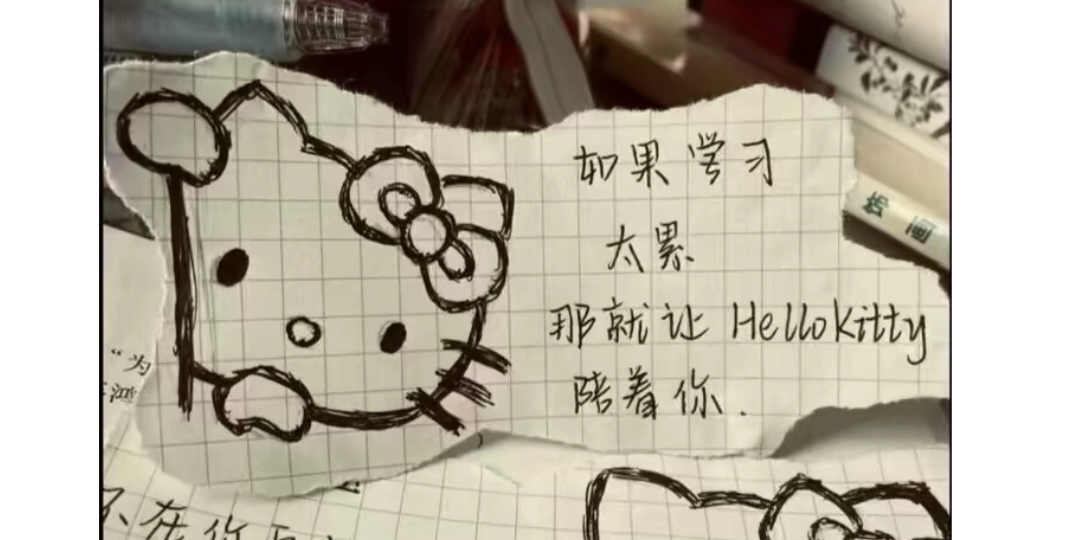 如果学习
太累
那就让 Hello Kitty
陪着你.
"为
不在你